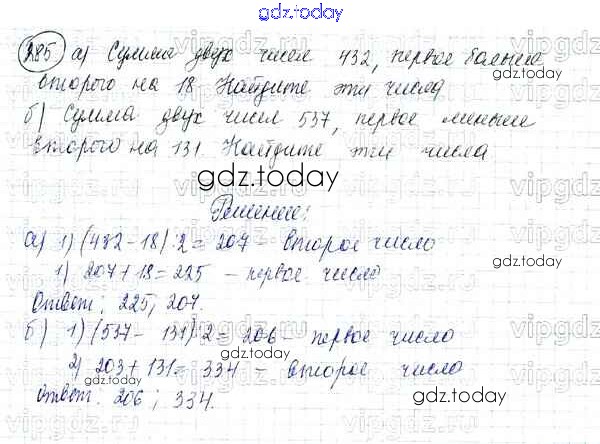 gdz.today
285 а) Сумма двух чисел 432, первое больше
второго на 18. Найдите эти числа
б) Сумма двух чисел 537, первое меньше
второго на 131. Найдите эти числа
gdz.today
Решение:
а) 1) (432 - 18) : 2 = 207 - второе число
1) 207 + 18 = 225 - первое число
Ответ: 225; 207.
б) 1) (537 - 131) : 2 = 206 - первое число
2) 203 + 131 = 334 - второе число
Ответ: 206; 334.
gdz.today